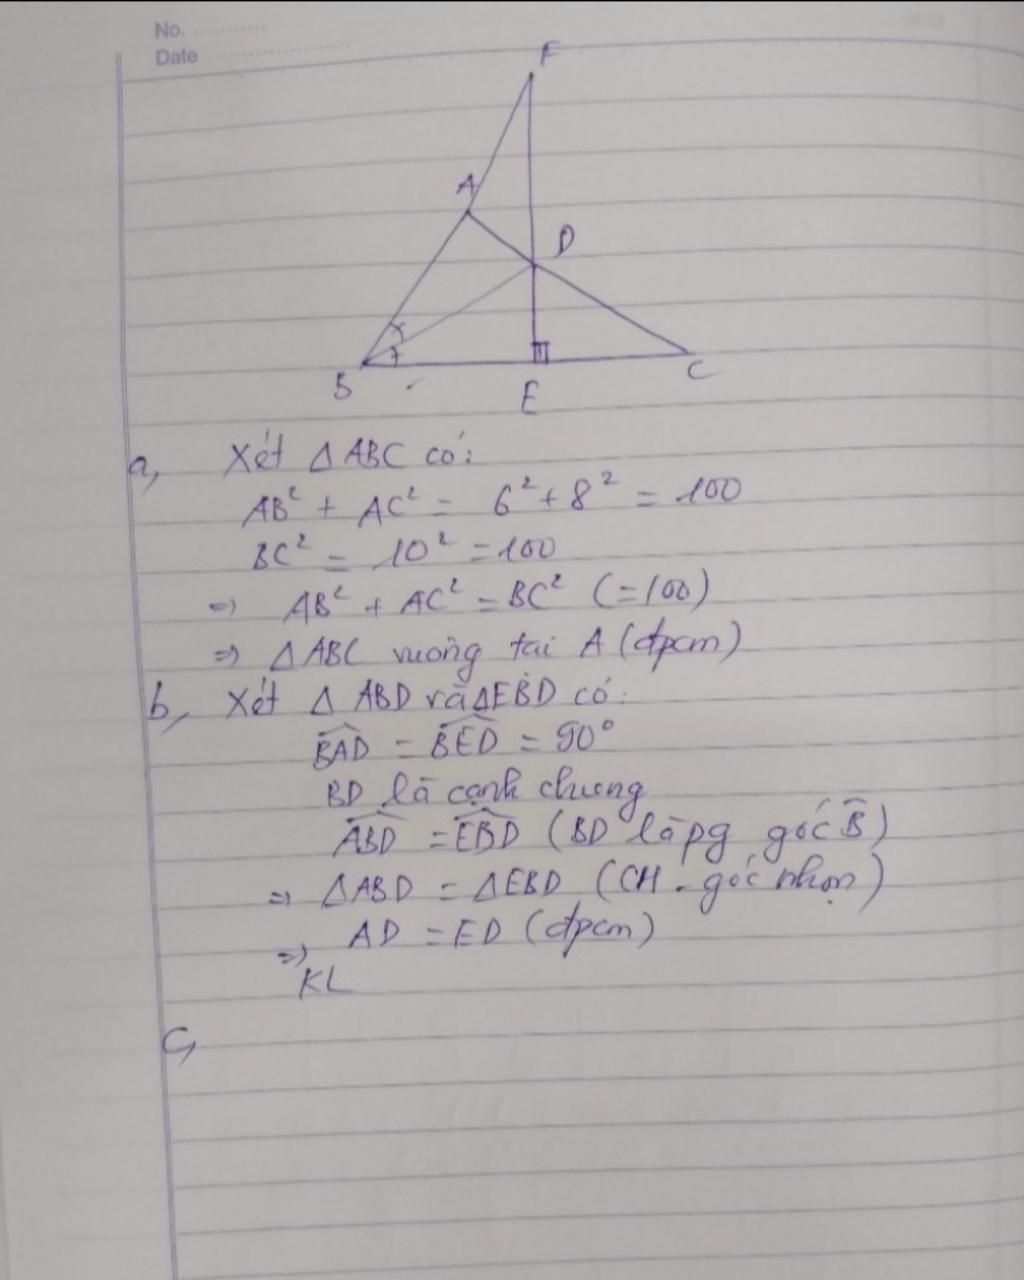 No.
Date
F
A
D
B
E
C
a, Xét Δ ABC có:
AB² + AC² = 6² + 8² = 100
BC² = 10² = 100
=> AB² + AC² = BC² (=100)
=> Δ ABC vuông tại A (đpcm)
b, Xét Δ ABD và ΔEBD có:
\widehat{BAD} = \widehat{BED} = 90°
BD là cạnh chung
\widehat{ABD} = \widehat{EBD} (BD là pg góc \widehat{B})
=> ΔABD = ΔEBD (CH - góc nhọn)
=> AD = ED (đpcm)
KL
C,